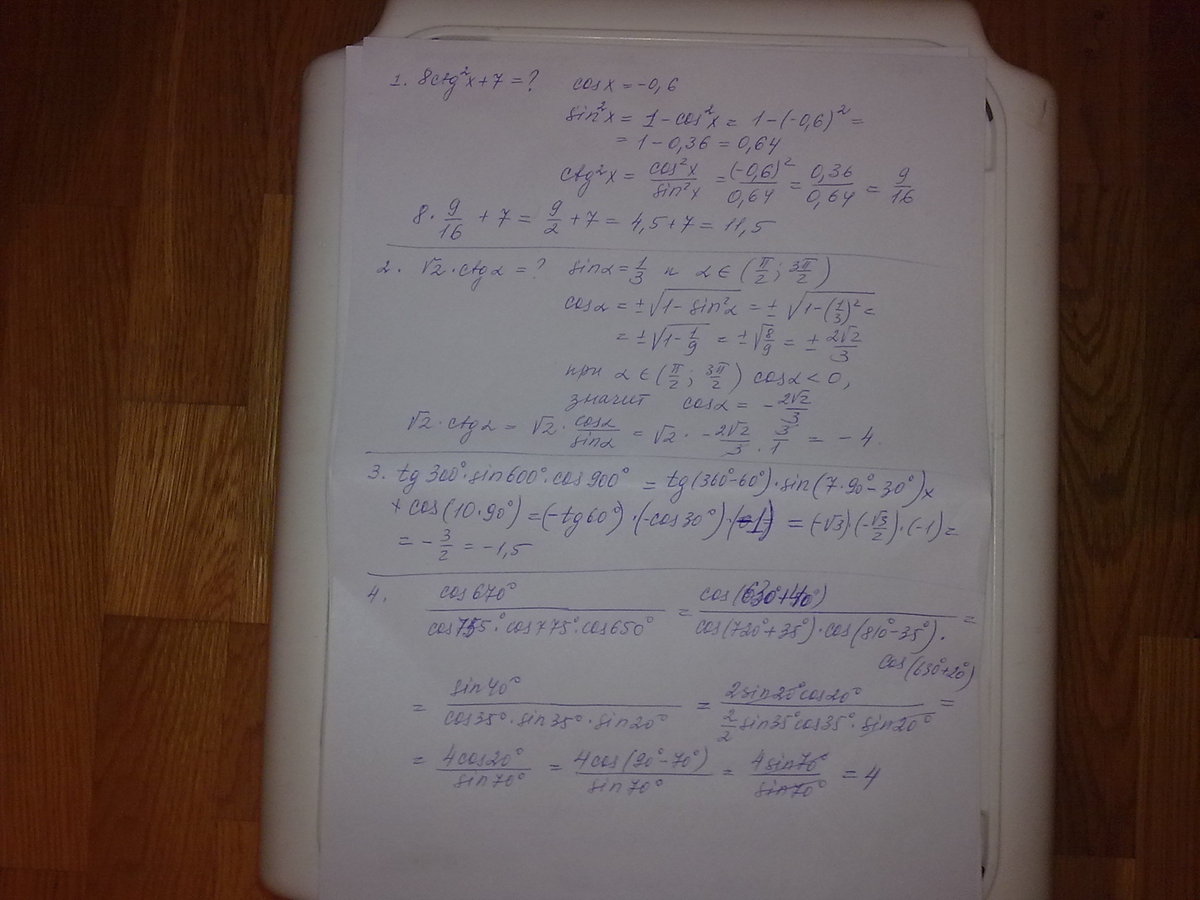 1. 8ctg²x+7 = ? cos x = -0,6
sin²x = 1 - cos²x = 1 - (-0,6)² =
= 1 - 0,36 = 0,64
ctg²x = cos²x/sin²x = (-0,6)²/0,64 = 0,36/0,64 = 9/16
8 · 9/16 + 7 = 9/2 + 7 = 4,5 + 7 = 11,5
2. √2 · ctg α = ? sin α = 1/3 и α ∈ (π/2 ; 3π/2)
cos α = ±√(1 - sin²α) = ±√(1 - (1/3)²) =
= ±√(1 - 1/9) = ±√(8/9) = ± 2√2/3
при α ∈ (π/2 ; 3π/2) cos α < 0,
значит cos α = - 2√2/3
√2 · ctg α = √2 · cos α/sin α = √2 · - 2√2/3 · 3/1 = -4.
3. tg 300° · sin 600° · cos 900° = tg(360° - 60°) · sin(7·90° - 30°) ×
× cos(10·90°) = (-tg 60°) · (-cos 30°) · (-1) = (-√3) · (-√3/2) · (-1) =
= - 3/2 = -1,5
4. cos 670°/(cos 755° · cos 775° · cos 650°) = cos(630° + 40°)/(cos(720° + 35°) · cos(810° - 35°) · cos(630° + 20°)) =
= sin 40°/(cos 35° · sin 35° · sin 20°) = 2 sin 20° cos 20°/(2/2 sin 35° cos 35° · sin 20°) =
= 4cos 20°/sin 70° = 4cos(90° - 70°)/sin 70° = 4sin 70°/sin 70° = 4